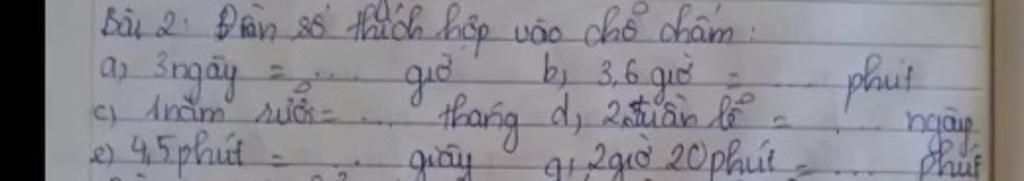 Bài 2: Điền số thích hợp vào chỗ chấm:
a) 3 ngày = .... giờ b) 3,6 giờ = .... phút
c) 1 năm rưỡi = ... tháng d) 2 tuần lễ = .... ngày
e) 4,5 phút = .... giây g) 2 giờ 20 phút = .... phút